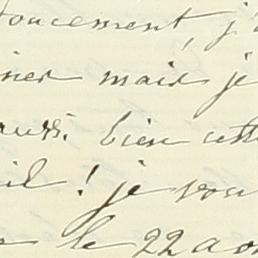 doucement, j'
iner mais je
aussi bien cette
il ! je vou
le 22 aou